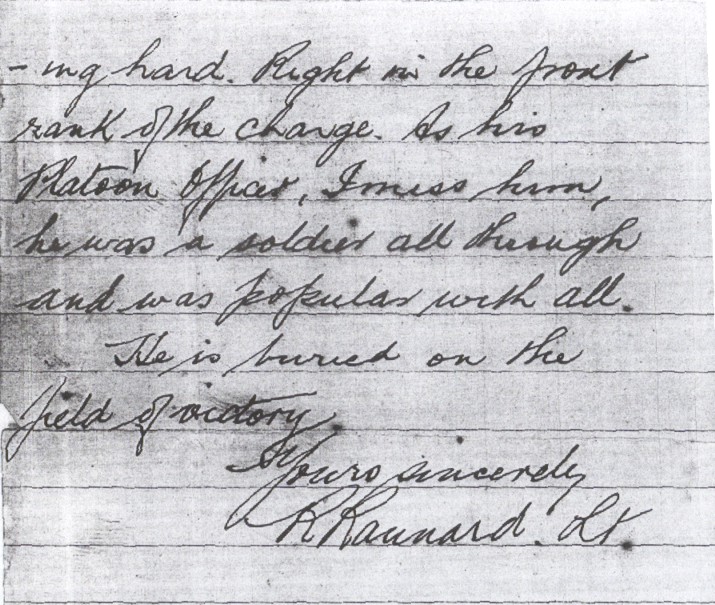 - ing hard. Right in the front
rank of the charge. As his
Platoon Officer, I miss him,
he was a soldier all through
and was popular with all.
He is buried on the
field of victory.
Yours sincerely
R Raunard. Lt.